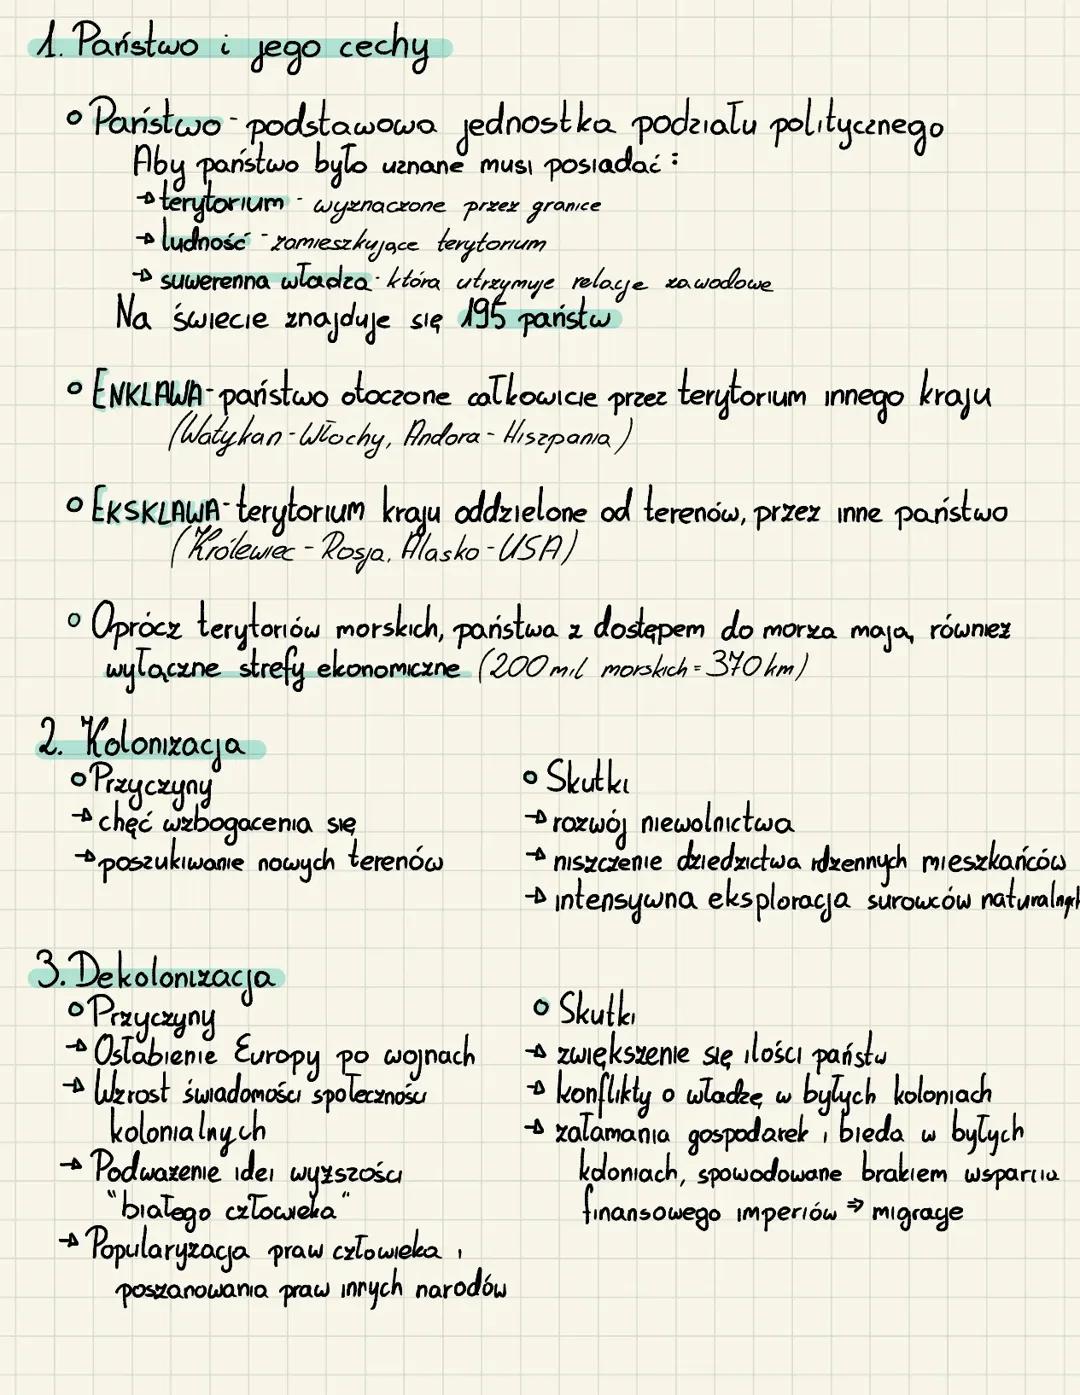 1. Państwo i jego cechy
Państwo - podstawowa jednostka podziału politycznego
Aby państwo było uznane musi posiadać:
→ terytorium - wyznaczone przez granice
→ ludność - zamieszkujące terytorium
→ suwerenna władza - która utrzymuje relacje zawodowe
Na świecie znajduje się 195 państw
ENKLAWA - państwo otoczone całkowicie przez terytorium innego kraju
(Watykan - Włochy, Andora - Hiszpania)
EKSKLAWA - terytorium kraju oddzielone od terenów, przez inne państwo
(Królewiec - Rosja, Alasko - USA)
Oprócz terytoriów morskich, państwa z dostępem do morza mają również
wyłączne strefy ekonomiczne (200 mil morskich = 370 km)
2. Kolonizacja
Przyczyny
→ chęć wzbogacenia się
→ poszukiwanie nowych terenów
Skutki
→ rozwój niewolnictwa
→ niszczenie dziedzictwa rdzennych mieszkańców
→ intensywna eksploracja surowców naturalnych
3. Dekolonizacja
Przyczyny
→ Osłabienie Europy po wojnach
→ Wzrost świadomości społeczności
kolonialnych
→ Podważenie idei wyższości
"białego człowieka"
→ Popularyzacja praw człowieka i
poszanowania praw innych narodów
Skutki
→ zwiększenie się ilości państw
→ konflikty o władzę w byłych koloniach
→ załamania gospodarek i bieda w byłych
koloniach, spowodowane brakiem wsparcia
finansowego imperiów ⇒ migracje